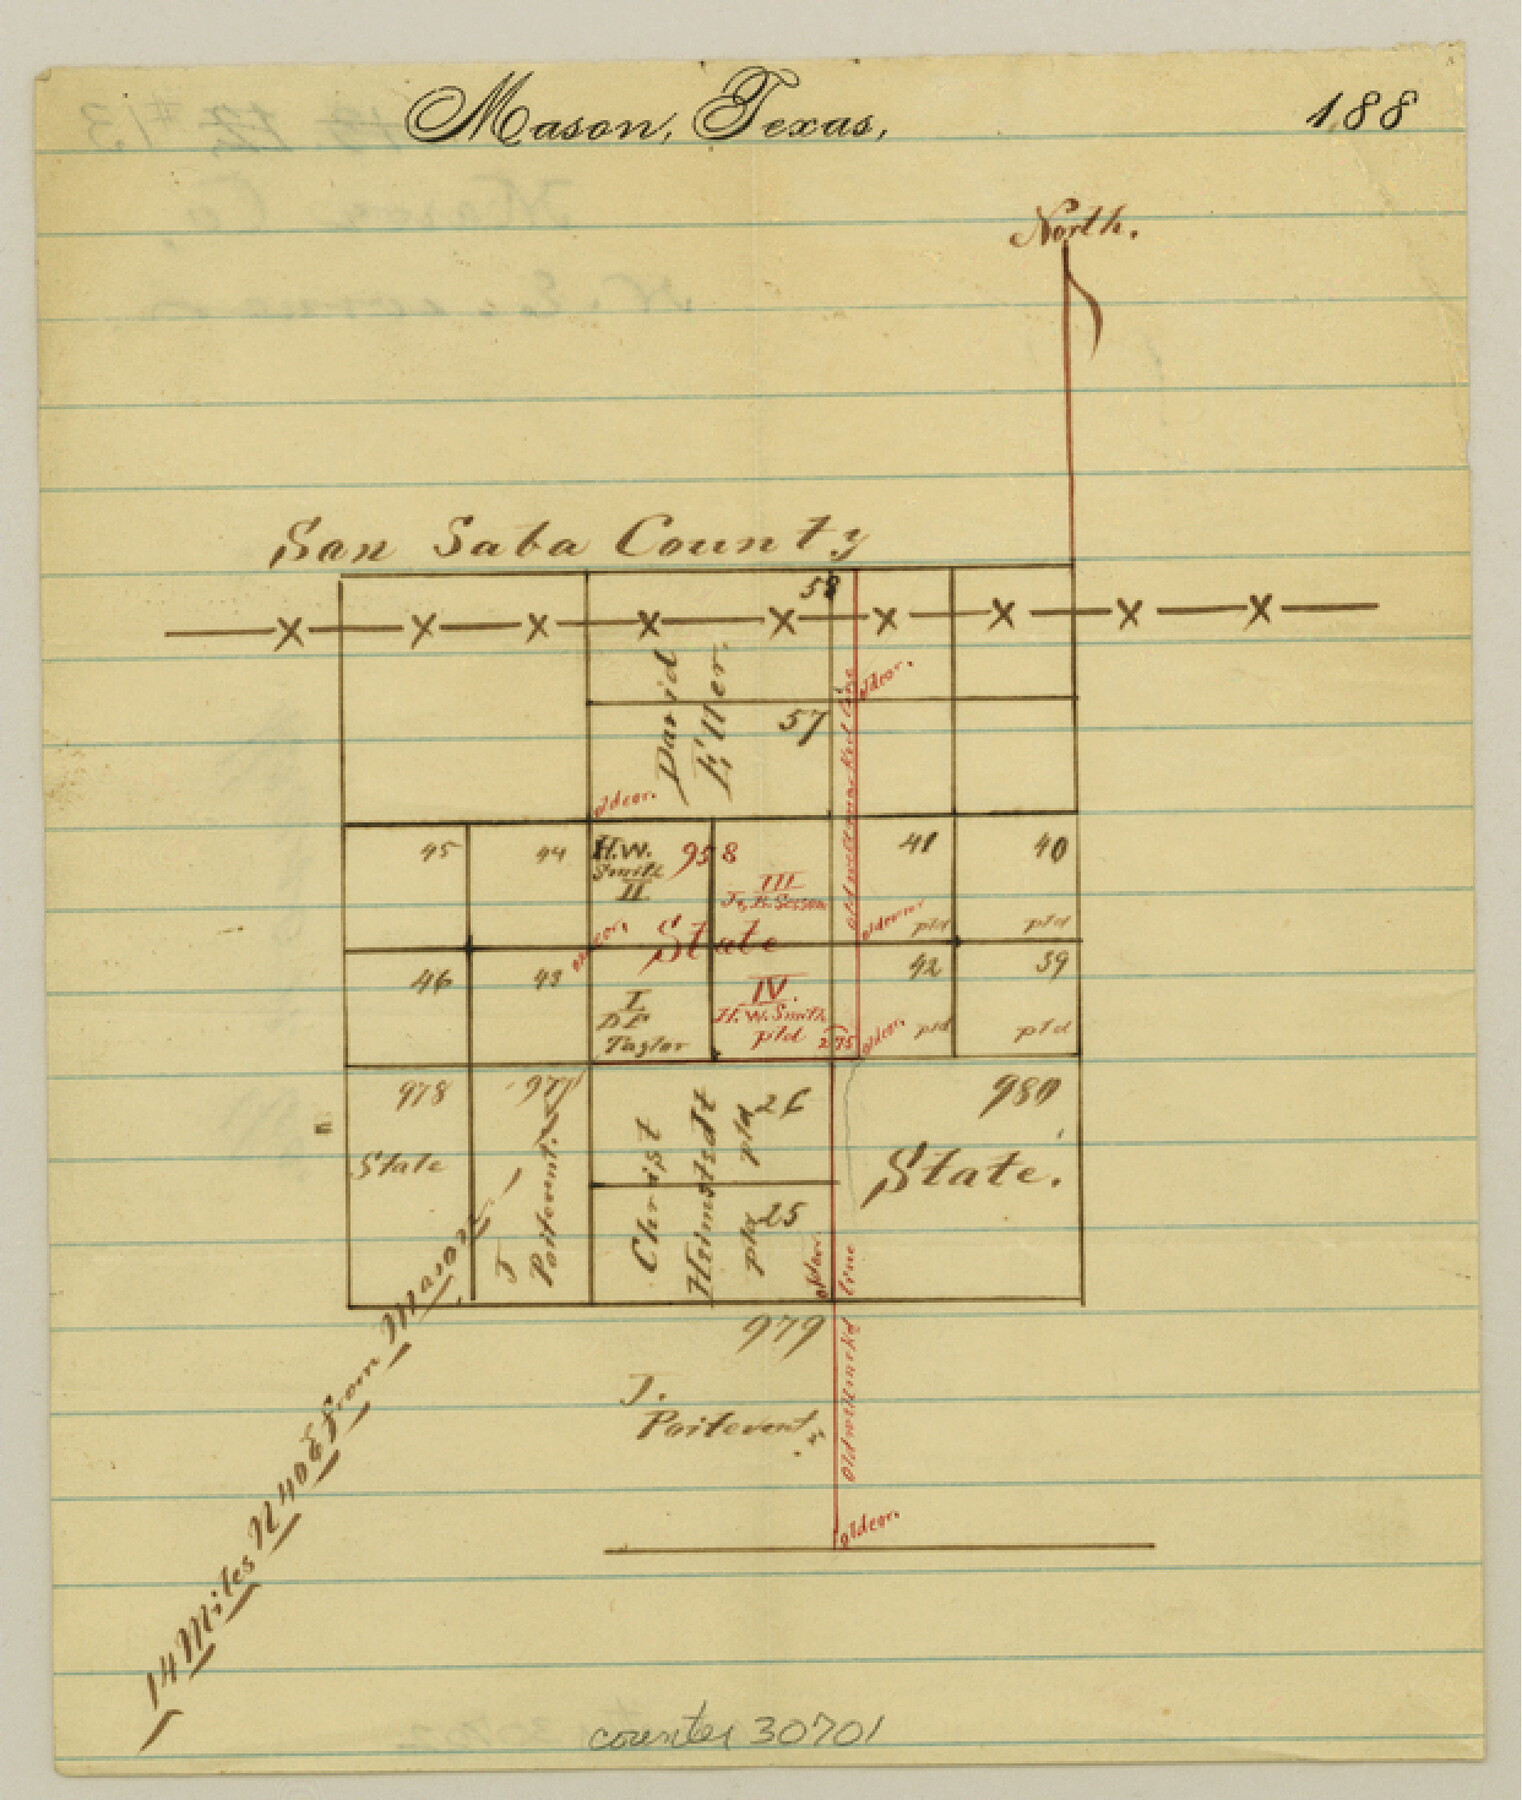 Mason, Texas,
188
North.
San Saba County
58
X X X X X X X X X
David
Eller.
57
old cor.
old well marked line
old cor.
45
44
H.W.
Smith
II
958
III
41
40
State
old cor.
pld
pld
46
43
I
Taylor
IV.
H.W. Smith
pld
275
old cor.
42
pld
39
pld
978
State
977
J
Poitevent.
Christ
26
pld
25
pld
old cor.
980
State.
979
J.
Poitevent
line
old cor.
14 Miles N 40 E from Mason
counter 30701